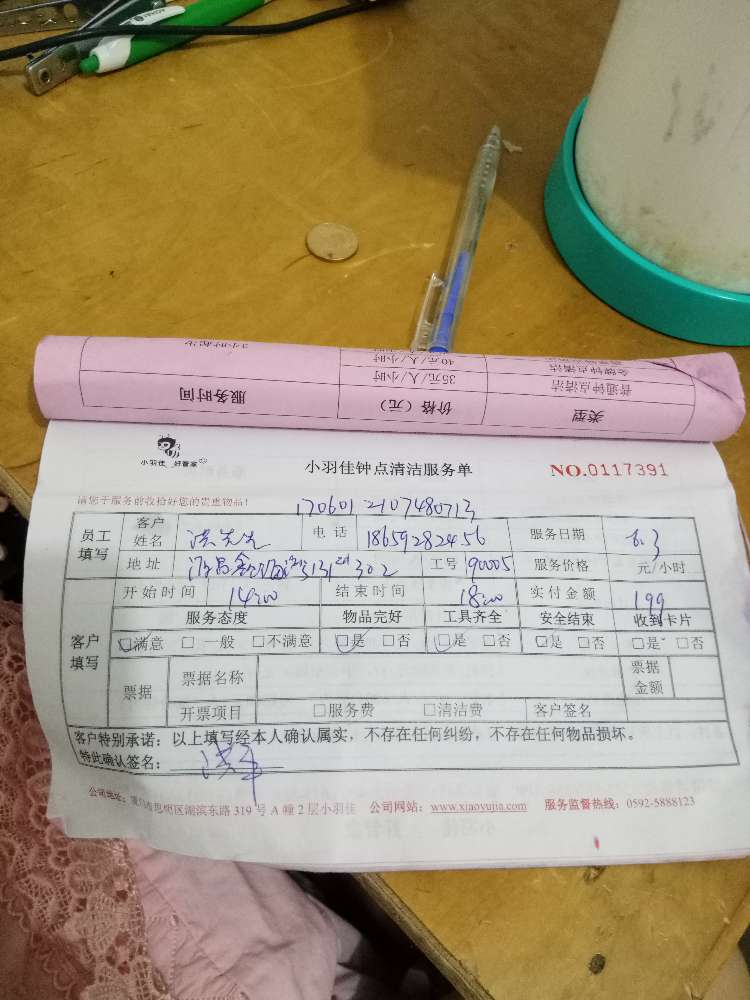 3小时起步 40元/人/小时 金牌钟点清洁
35元/人/小时 普通钟点清洁
服务时间 价格（元） 类型
小羽佳 好管家
小羽佳钟点清洁服务单 NO.0117391
请您于服务前收拾好您的贵重物品！
1706012107480713
员工填写 客户姓名 洪先生 电话 18659282456 服务日期 6.3
地址 302 工号 90005 服务价格 元/小时
客户填写 开始时间 14:00 结束时间 18:00 实付金额 199
服务态度 物品完好 工具齐全 安全结束 收到卡片
☑满意 □一般 □不满意 ☑是 □否 ☑是 □否 ☑是 □否 □是 □否
票据 票据名称 票据金额
开票项目 □服务费 □清洁费 客户签名
客户特别承诺：以上填写经本人确认属实，不存在任何纠纷，不存在任何物品损坏。
特此确认签名：
公司地址：厦门市思明区湖滨东路 319 号 A 幢 2 层小羽佳 公司网站：www.xiaoyujia.com 服务监督热线：0592-5888123